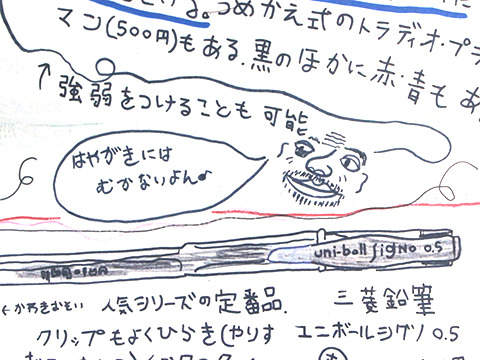 つめかえ式のトラディオ・プラ
マン(500円)もある。黒のほかに赤・青もあ
↑強弱をつけることも可能
はやがきには
むかないよん♪
uni-ball SigNo 0.5
←かわきおそい
人気シリーズの定番品.
三菱鉛筆
クリップもよくひらき(やりす
ユニボールシグノ 0.5